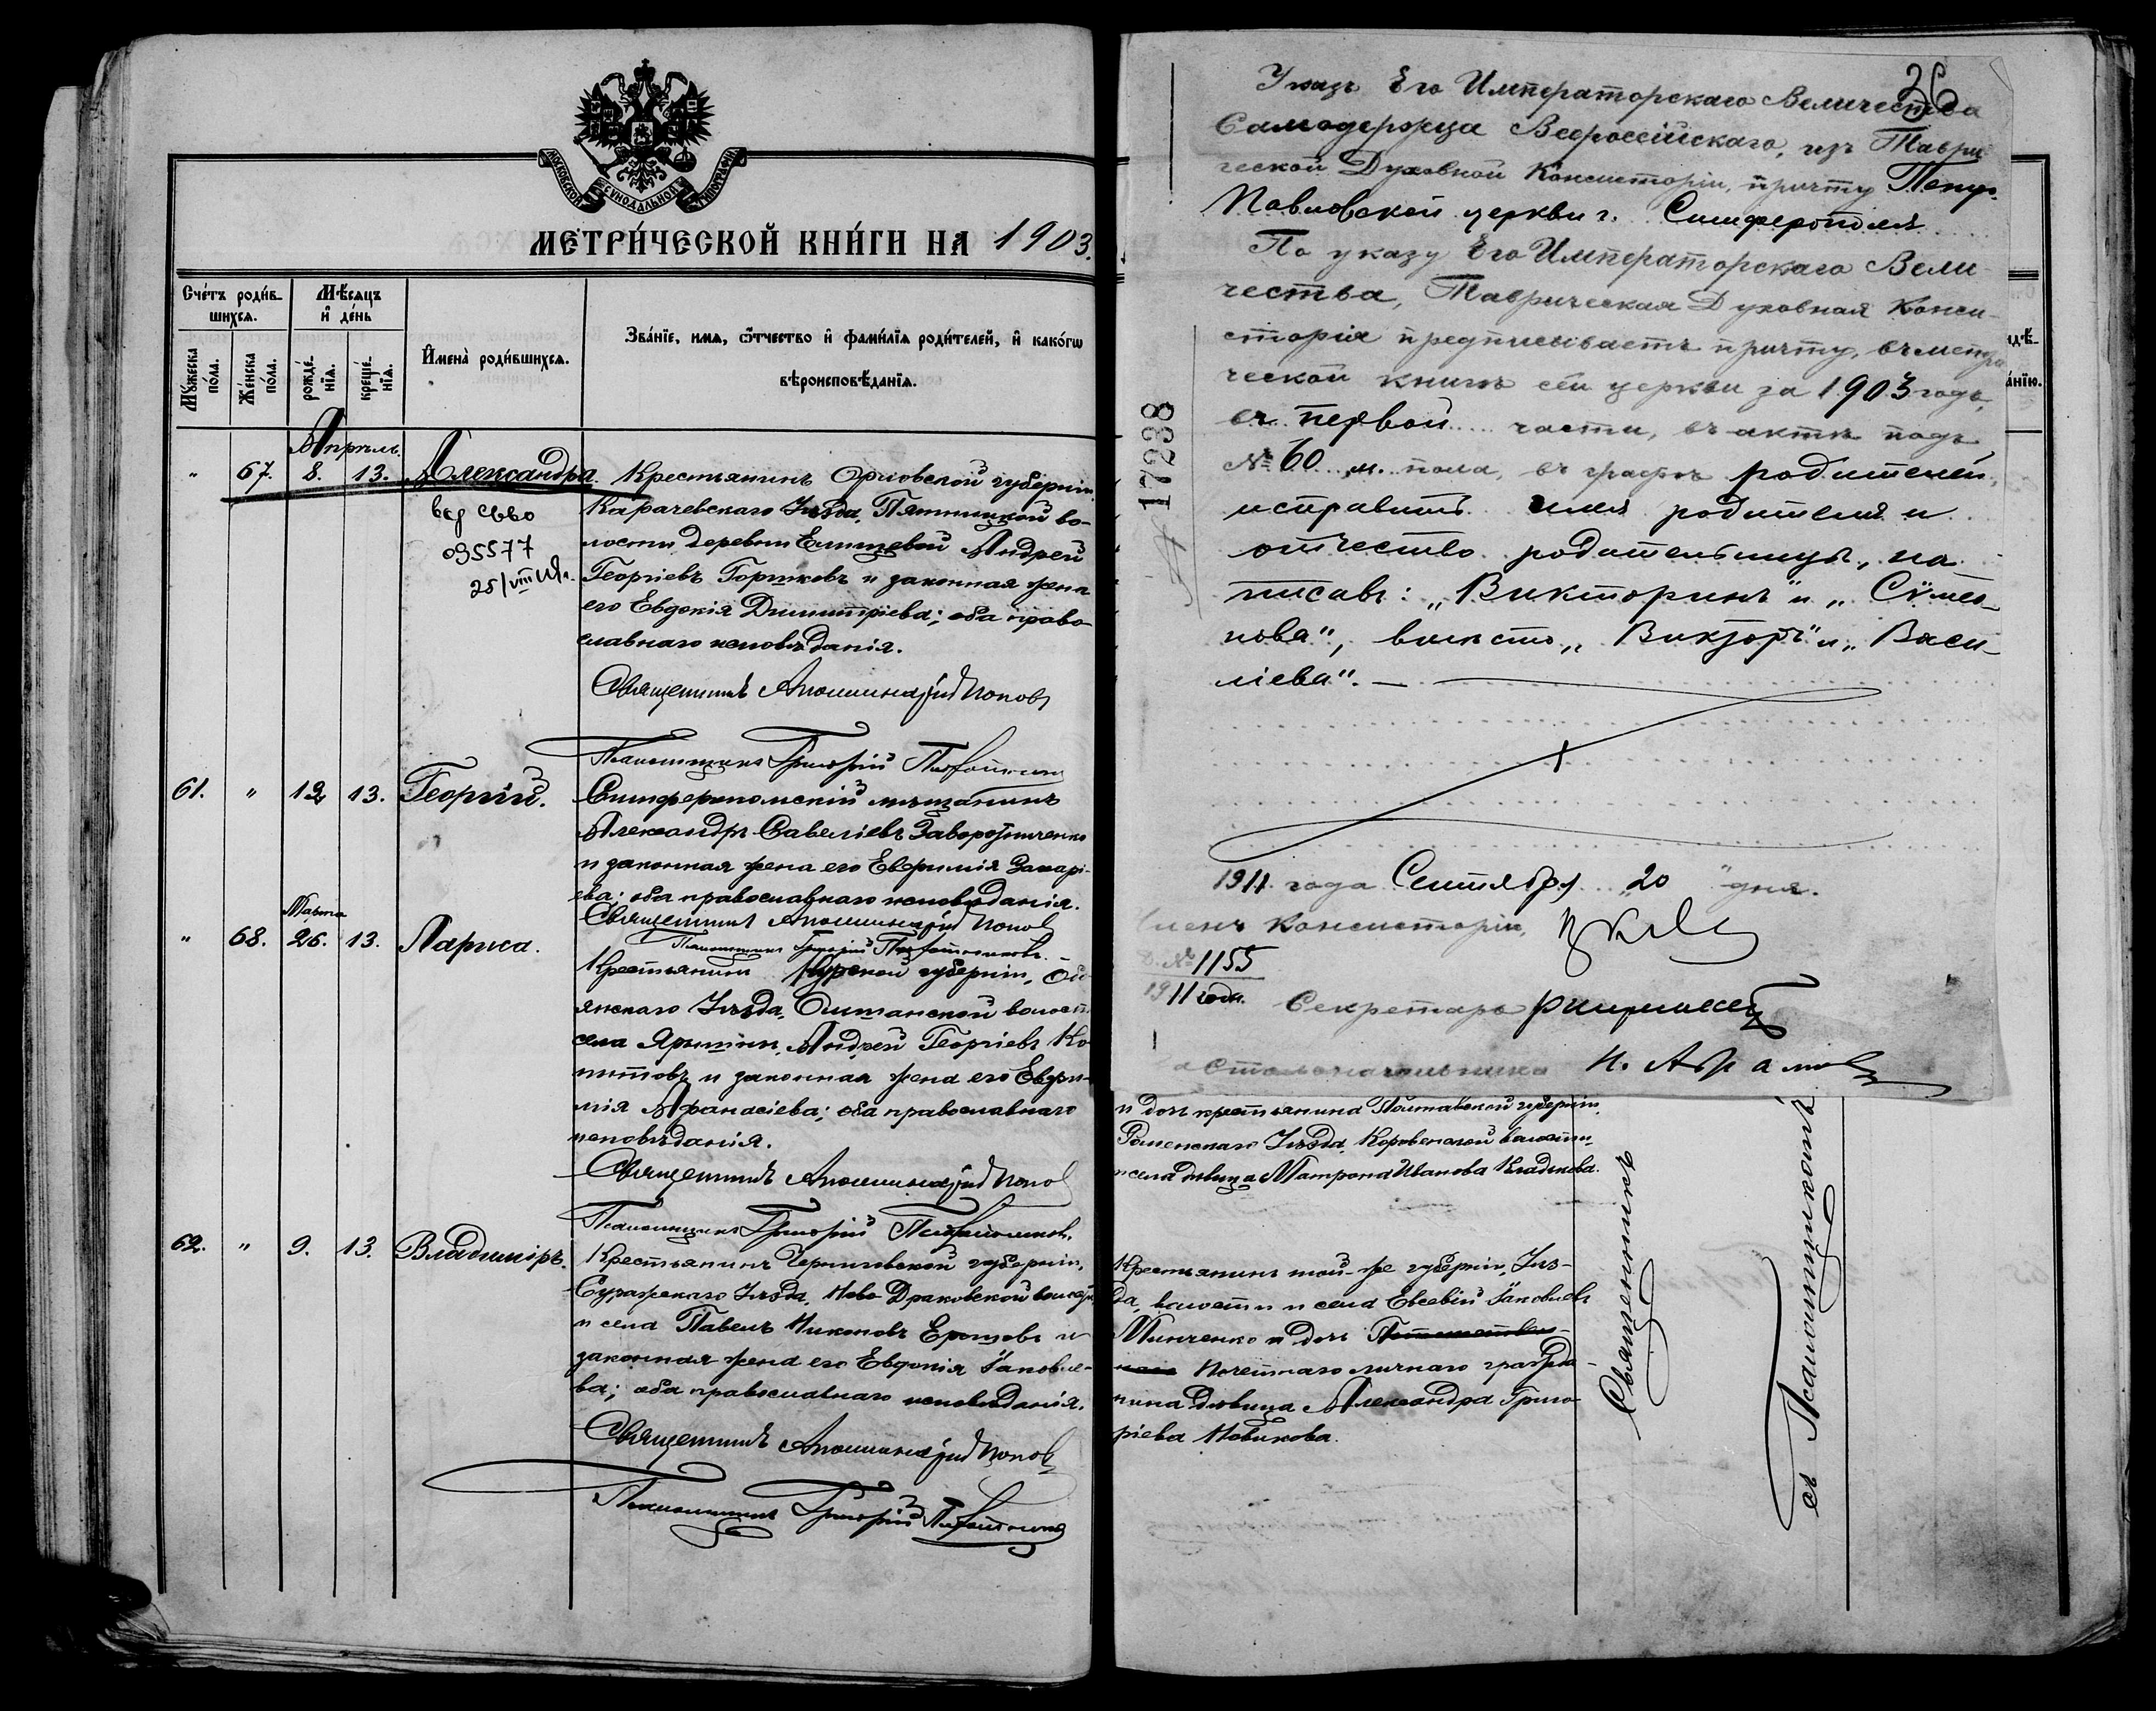 МОСКОВСКОЙ СУНОДАЛЬНОЙ ТИПОГРАФІИ
МЕТРИ́ЧЕСКОЙ КНИ́ГИ НА 1903.
Сче́тъ роди́в-
шихся.
Мѣ́сяцъ
и҆ де́нь
Мꙋ́жеска
по́ла.
Же́нска
по́ла.
рожде́-
нїѧ.
креще́-
нїѧ.
И҆мена̀ роди́вшихсѧ.
Зва́нїе, имѧ, ѿтчество и҆ фами́лїѧ роди́телей, и҆ како́гѡ
вѣроисповѣ́данїѧ.
Апрѣль.
" 67. 8. 13. Александра.
Крестьянинъ Орловской губерніи
Карачевскаго Уѣзда, Пятницкой во-
лости, деревни Елишевой Андрей
Георгіевъ Горшковъ и законная жена
его Евдокія Димитріева; оба право-
славнаго исповѣданія.
035577
Священникъ Аполлинарій Поповъ
Псаломщикъ Григорій
61. " 12 13. Георгій.
Симферопольскій мѣщанинъ
Александръ Савеліевъ Заворотниченко
и законная жена его Евфимія Захарі-
ева; оба православнаго исповѣданія.
Священникъ Аполлинарій Поповъ
Псаломщикъ Григорій
Марта
" 68. 26. 13. Лариса.
Крестьянинъ Курской губерніи, Обо
янскаго Уѣзда, волост
села Андрей Георгіевъ Ко
пытовъ и законная жена его Евфи-
мія Афанасіева; оба православнаго
исповѣданія.
Священникъ Аполлинарій Поповъ
Псаломщикъ Григорій
62. " 9. 13. Владиміръ.
Крестьянинъ Черниговской губерніи,
Суражскаго Уѣзда, Ново-Драковской волости
и села Павелъ Никоновъ Ершовъ и
законная жена его Евдокія Іаковле-
ва; оба православнаго исповѣданія.
Священникъ Аполлинарій Поповъ
Псаломщикъ Григорій
26
Указъ Его Императорскаго Величества
Самодержца Всероссійскаго, изъ Таври
ческой Духовной Консисторіи, причту Петро-
Павловской церкви г. Симферополя
По указу Его Императорскаго Вели-
чества, Таврическая Духовная Конси-
сторія предписываетъ причту, въ метри
ческой книгѣ сей церкви за 1903 годъ,
въ первой части, въ актѣ подъ
№ 60 м. пола, въ графѣ родителей,
исправить имя родителя и
отчество родительницы, на
писавъ: „Викторинъ" и „Сѵмео-
нова", вмѣсто „Викторъ" и „Васи-
ліева". —
17238
1911 года Сентября „20" дня.
Членъ Консисторіи,
№ 1155
1911 года.
Секретарь
Столоначальника Н. Абрамовъ
и дочь крестьянина Полтавской губерніи,
Роменскаго Уѣзда, Коровинской волости
и села дѣвица Матрона Иванова Кладькова.
Крестьянинъ той-же губерніи, Уѣз-
да, волости и села Евсевій Іаковлевъ
Минченко и дочь
Почетнаго личнаго гражда-
нина дѣвица Александра Григо
ріева Новикова.
Священникъ
съ Псаломщикомъ